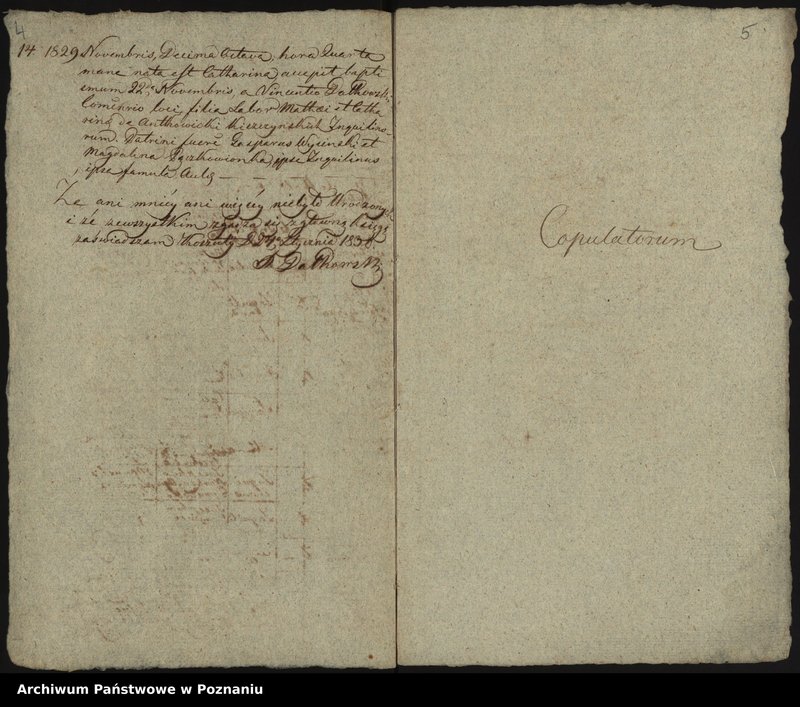 4
14 1829 Novembris, Decima Octava, hora Quarta
mane nata est Catharina accepit bapti
smum 22 Novembris, a Vincentio Dalkowski
Comēnrio loci, filia Labor Mathæi et Catha
rinæ de Antkowicki Kiszczynskich Inquilino-
rum. Patrini fuerē Gasperus et
Magdalena ipse Inquilinus
ipse famula Aulæ
Ze ani mniéy ani więcéy niebyło Urodzonych
i że zewszystkim zgadza się z główną księgą
zaświadszam Stycznia 1830
5
Copulatorum
Archiwum Państwowe w Poznaniu